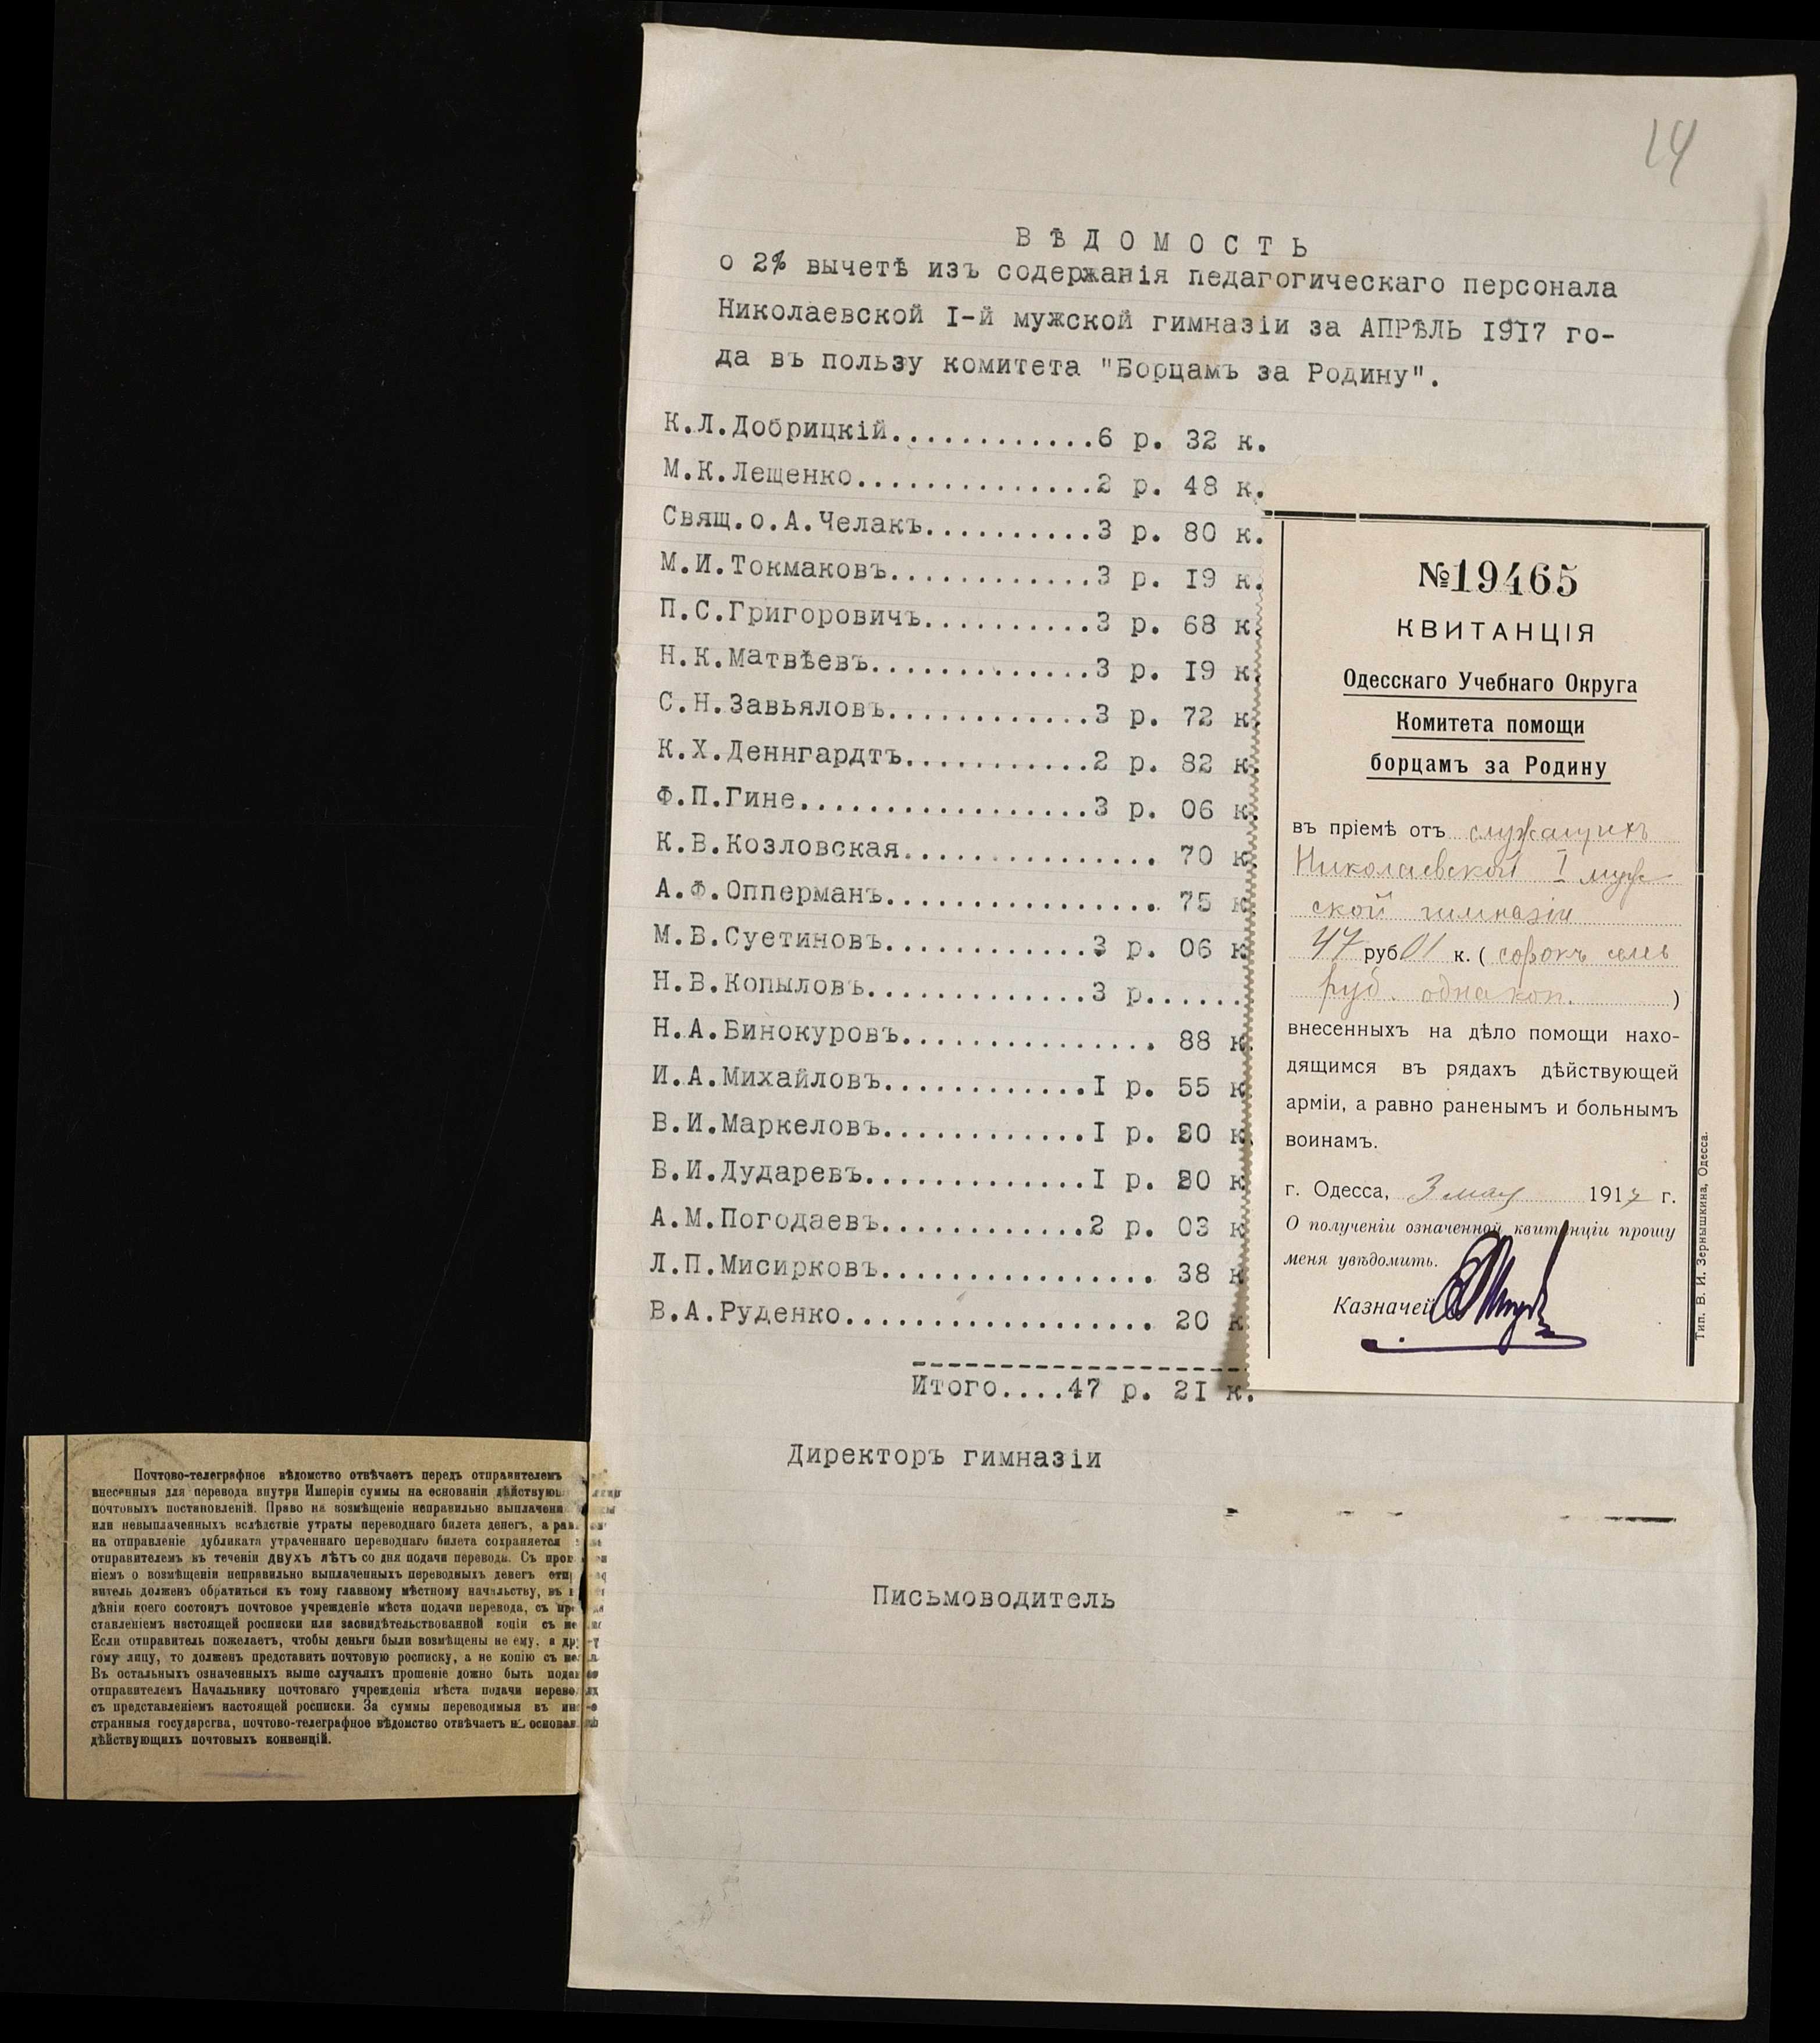 14
ВѢДОМОСТЬ
о 2% вычетѣ изъ содержанія педагогическаго персонала
Николаевской I-й мужской гимназіи за АПРѢЛЬ 1917 го-
да въ пользу комитета "Борцамъ за Родину".
К.Л.Добрицкій............6 р. 32 к.
М.К.Лещенко..............2 р. 48 к.
Свящ.о.А.Челакъ..........3 р. 80 к.
М.И.Токмаковъ............3 р. I9 к.
П.С.Григоровичъ..........3 р. 68 к.
Н.К.Матвѣевъ.............3 р. I9 к.
С.Н.Завьяловъ............3 р. 72 к.
К.Х.Деннгардтъ...........2 р. 82 к.
Ф.П.Гине.................3 р. 06 к.
К.В.Козловская............... 70 к.
А.Ф.Опперманъ................ 75 к
М.В.Суетиновъ............3 р. 06 к
Н.В.Копыловъ.............3 р......
Н.А.Винокуровъ............... 88 к.
И.А.Михайловъ............I р. 55 к
В.И.Маркеловъ............I р. 80 к.
В.И.Дударевъ.............I р. 80 к
А.М.Погодаевъ............2 р. 03 к
Л.П.Мисирковъ................ 38 к
В.А.Руденко.................. 20 к
Итого....47 р. 2I к.
Директоръ гимназіи
Письмоводитель
№19465
КВИТАНЦІЯ
Одесскаго Учебнаго Округа
Комитета помощи
борцамъ за Родину
въ пріемѣ отъ служащихъ
Николаевской I муж
ской гимназіи
47 руб 01 к. ( сорокъ семь
руб. одна коп. )
внесенныхъ на дѣло помощи нахо-
дящимся въ рядахъ дѣйствующей
арміи, а равно раненымъ и больнымъ
воинамъ.
г. Одесса, 3 мая 1917 г.
О полученіи означенной квитанціи прошу
меня увѣдомить.
Казначей
Тип. В. И. Зернышкина, Одесса.
Почтово-телеграфное вѣдомство отвѣчаетъ передъ отправителемъ
внесенныя для перевода внутри Имперіи суммы на основаніи
почтовыхъ постановленій. Право на возмѣщеніе неправильно
или невыплаченныхъ вслѣдствіе утраты переводнаго билета денегъ, а
на отправленіе дубликата утраченнаго переводнаго билета сохраняется
отправителемъ въ теченіи ДВУХЪ ЛѢТЪ со дня подачи перевода. Съ
ніемъ о возмѣщеніи неправильно выплаченныхъ переводныхъ денегъ
витель долженъ обратиться къ тому главному мѣстному начальству, въ
дѣніи коего состоитъ почтовое учрежденіе мѣста подачи перевода, съ
ставленіемъ настоящей росписки или засвидѣтельствованной копіи съ
Если отправитель пожелаетъ, чтобы деньги были возмѣщены не ему, а
гому лицу, то долженъ представить почтовую росписку, а не копію съ
Въ остальныхъ означенныхъ выше случаяхъ прошеніе дожно быть
отправителемъ Начальнику почтоваго учрежденія мѣста подачи
съ представленіемъ настоящей росписки. За суммы переводимыя въ
странныя государства, почтово-телеграфное вѣдомство отвѣчаетъ
дѣйствующихъ почтовыхъ конвенцій.